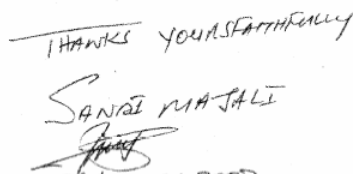 THANKS YOURSFAITHFULLY
SANDI MAJALI